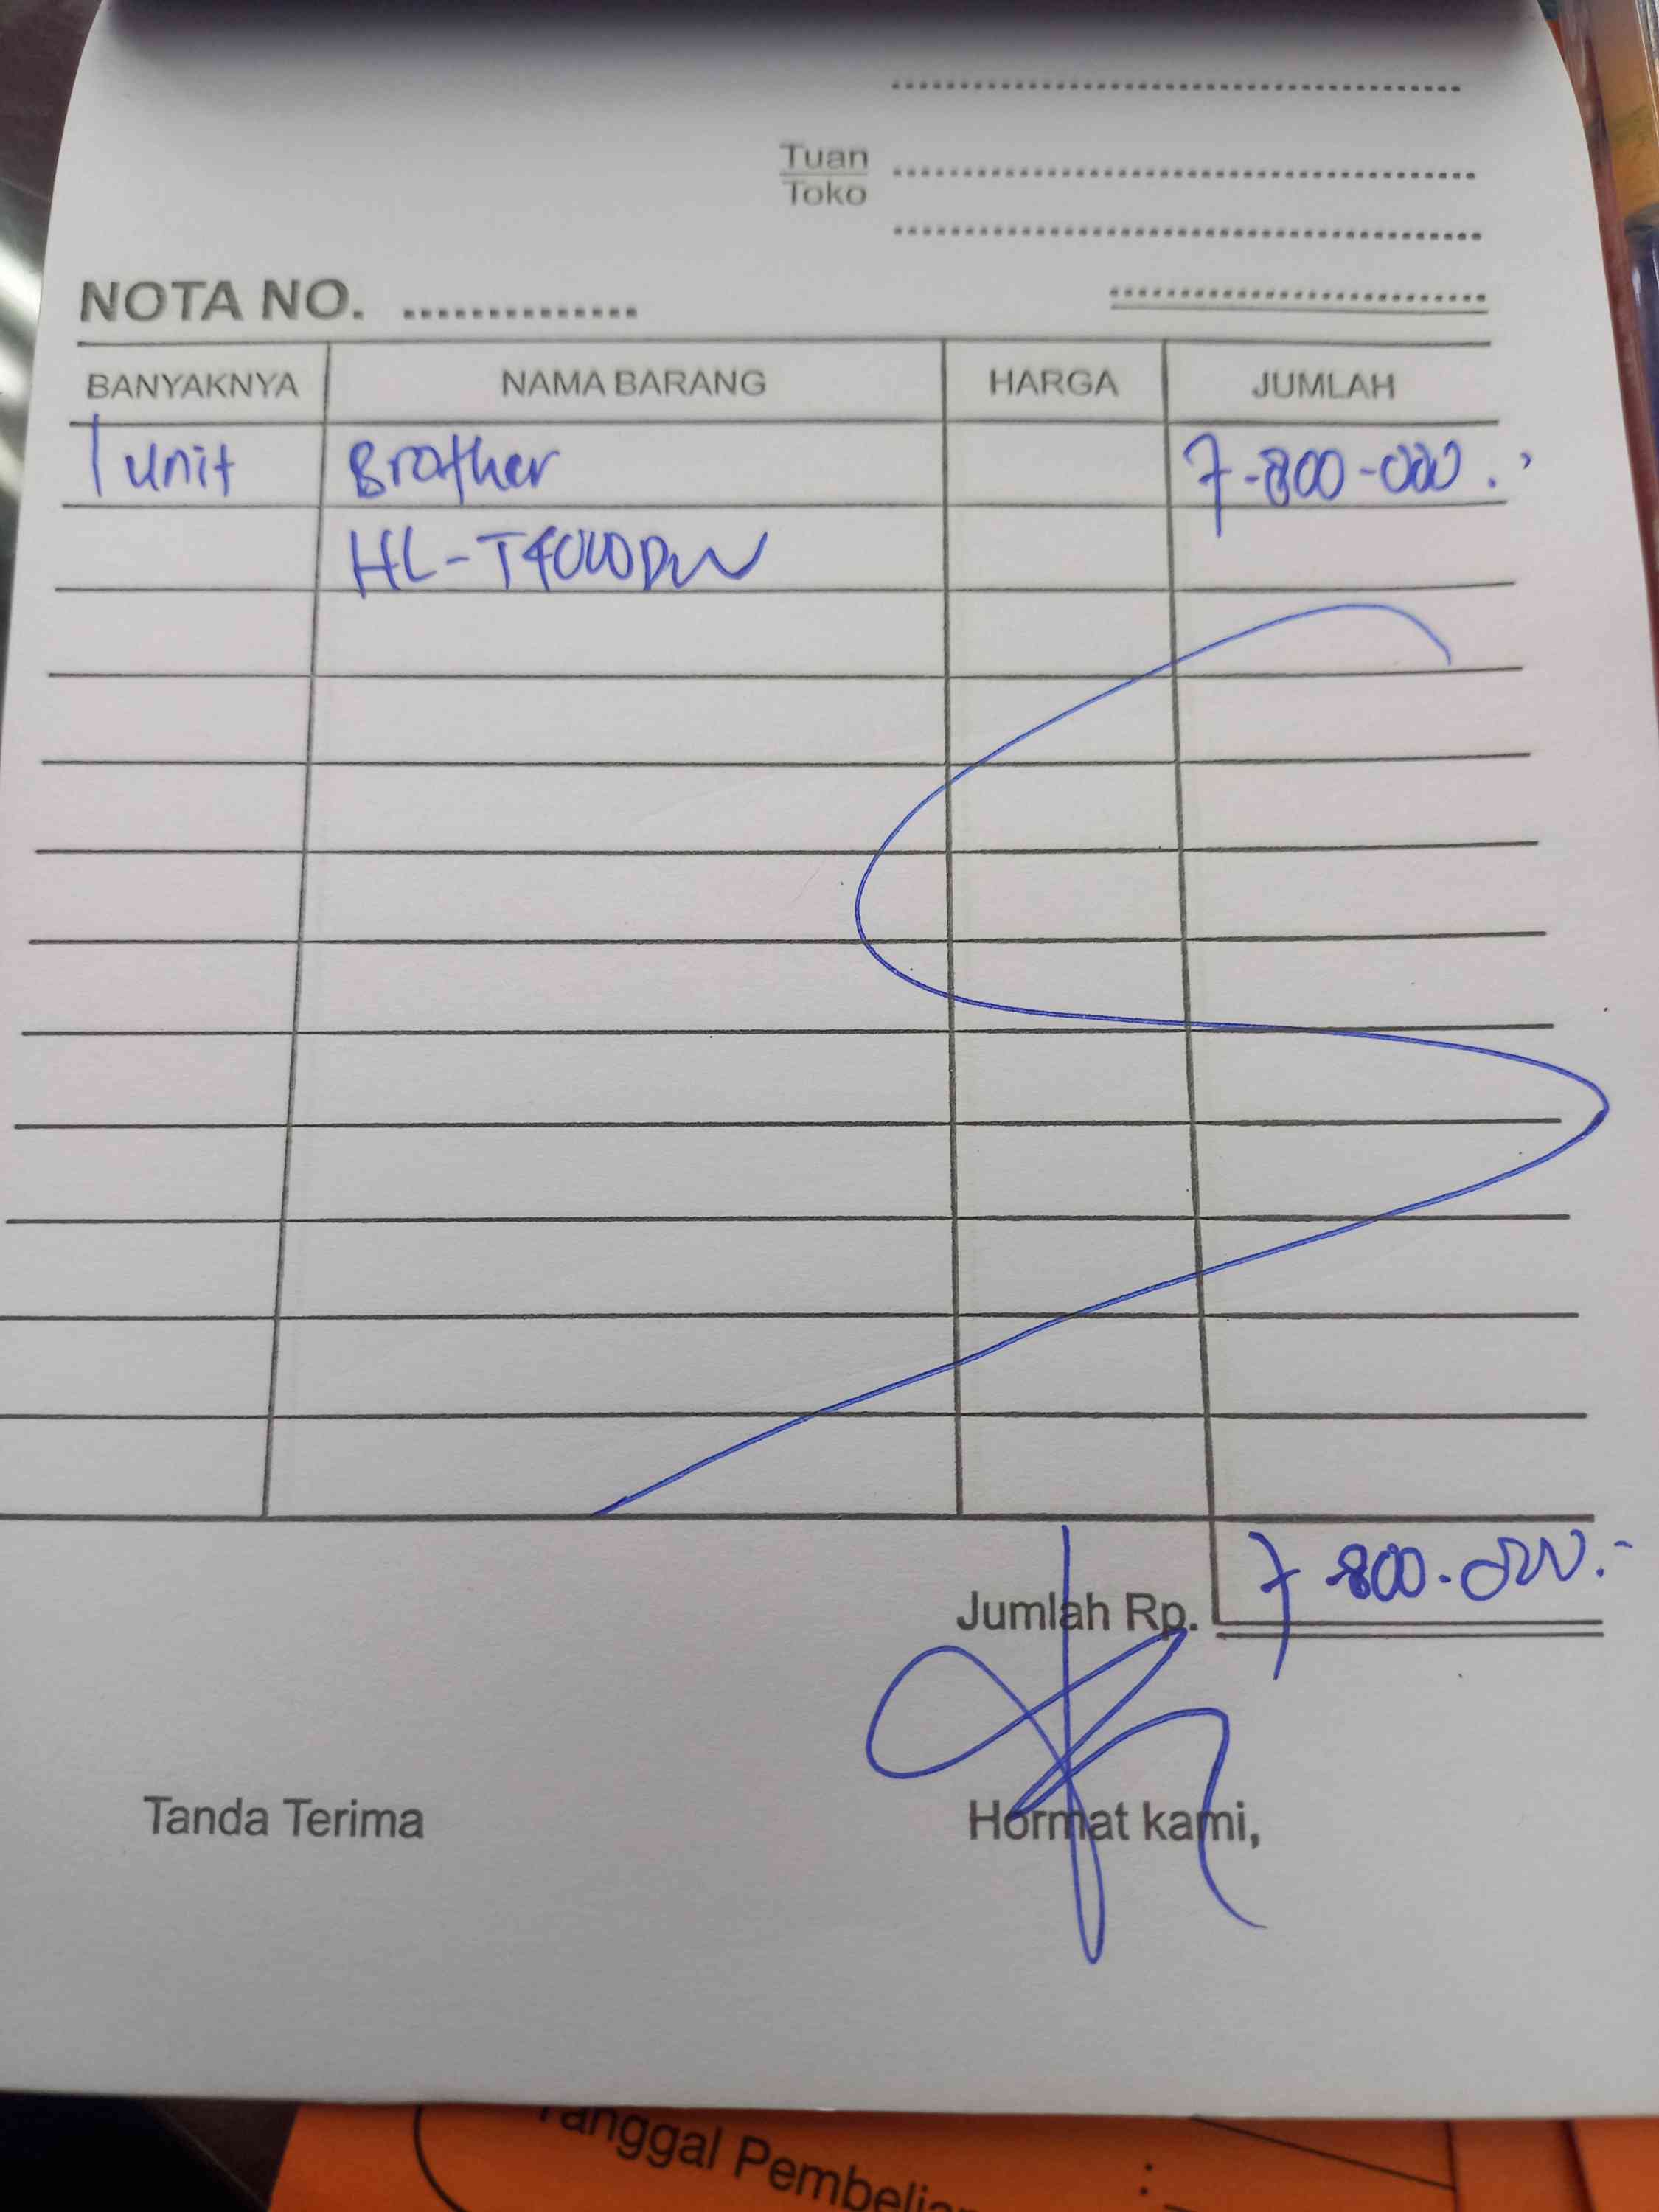 Tuan
Toko
NOTA NO.
BANYAKNYA NAMA BARANG HARGA JUMLAH
1 unit Brother 7-800-000.
HL-T4000DW
Jumlah Rp. 7-800-000.-
Tanda Terima Hormat kami,
Tanggal Pembelian :